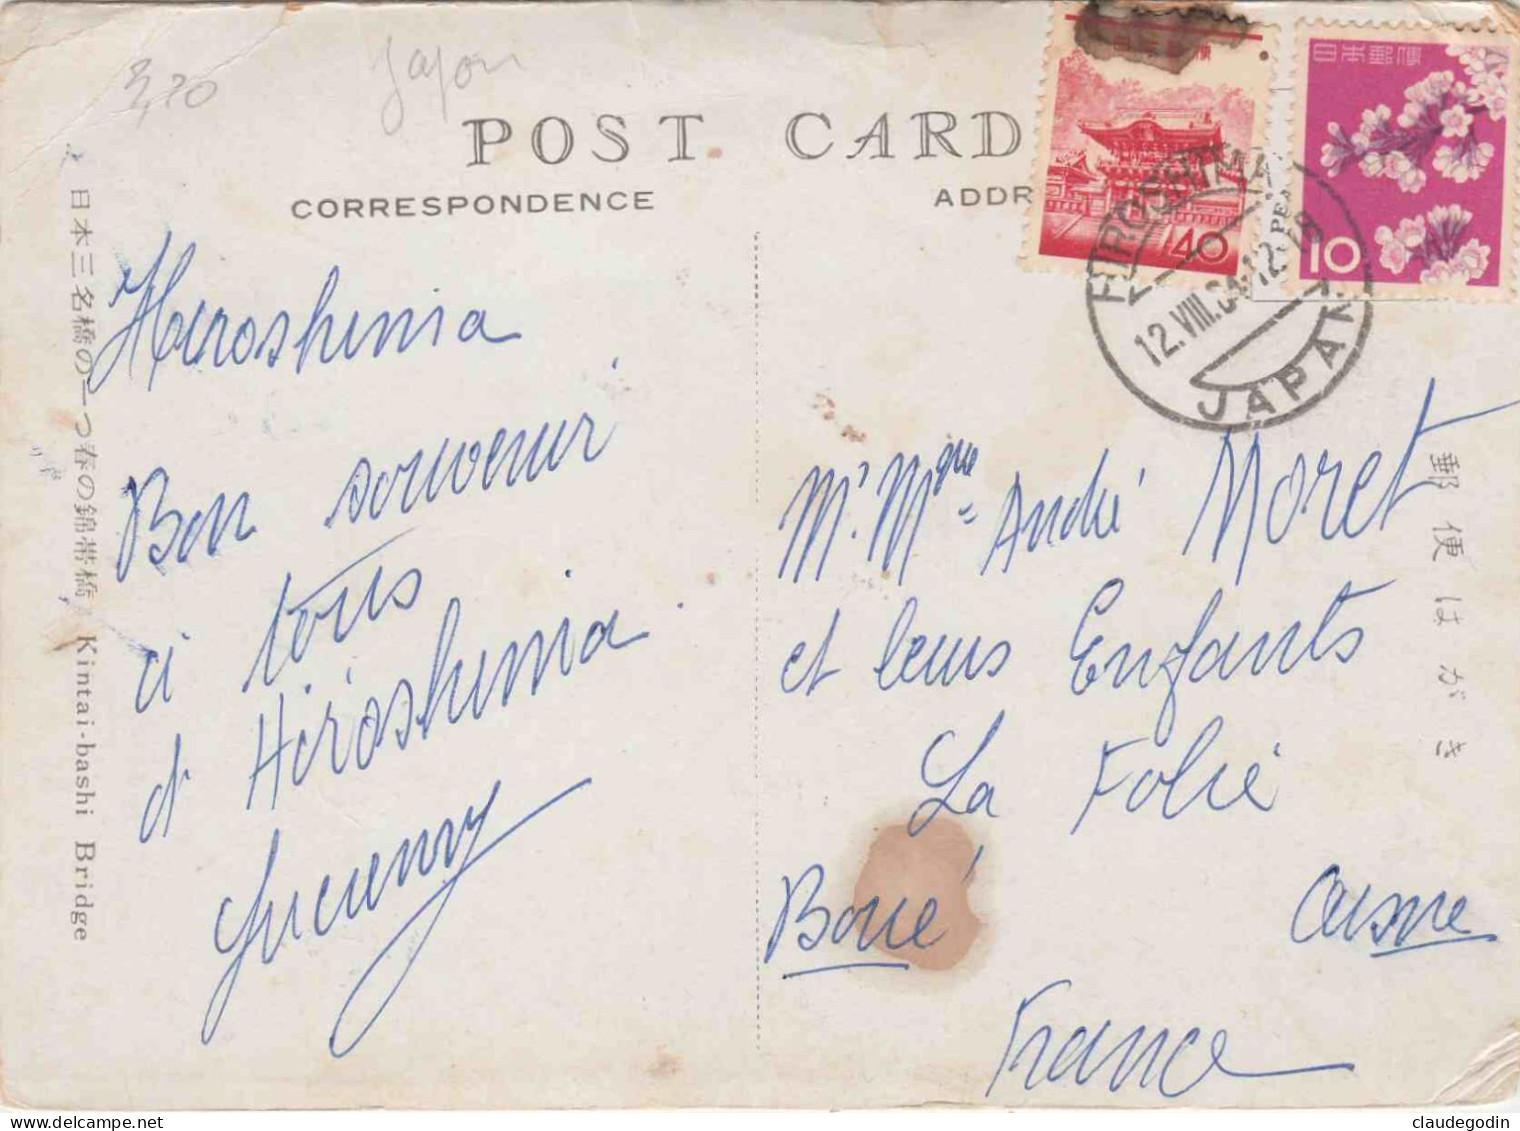 3,20
Japon
POST CARD
CORRESPONDENCE
ADDR
日本郵便
40
日本郵便
10
HIROSHIMA
12.VIII.64.12-18
JAPAN
日本三名橋の一つ春の錦帯橋 Kintai-bashi Bridge
Hiroshima
Bon souvenir
à tous
d'Hiroshima
郵便はがき
Mr. Mme André Moret
et leurs Enfants
La Folie
Boué Aisne
France
claudegodin